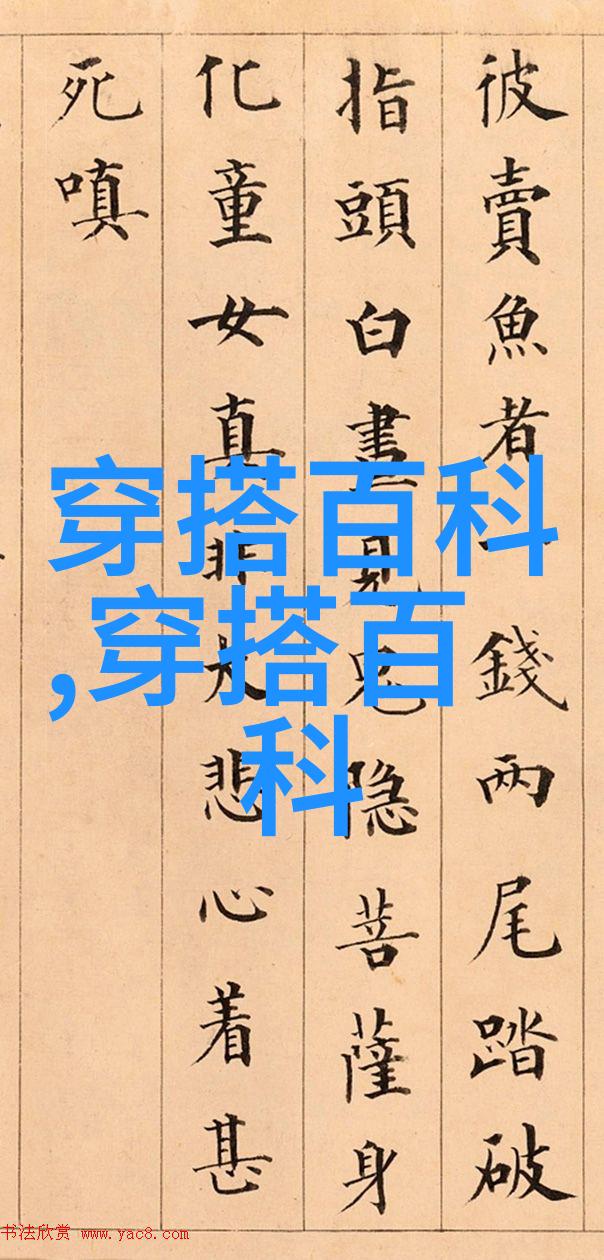 彼賣魚者一錢兩尾踏破
指頭白晝見鬼隐菩薩身
化童女真非大悲心着甚
死嗔
穿搭百科
,穿搭百
科
书法欣赏 www.yac8.com